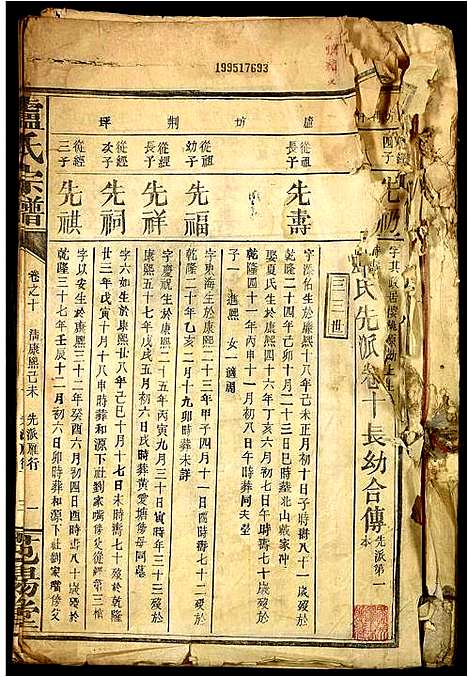 199517693
盧氏先派卷十長幼合傳
先派第一本
三三世
廬
坊
荊
坪
從祖長子
先壽
字漢佑生於康熙十八年己未正月初十日子時壽八十一歲歿於
乾隆二十四年己卯十月二十三日巳時葬北山戴家沖
娶夏氏生於康熙四十六年丁亥六月初七日午時壽七十一歲歿於
乾隆四十一年
十一月初八日午時葬同夫塋
子一 進熙 女一適
從祖幼子
先福
字東海生於康熙二十三年甲子四月十一日酉時壽七十二歲歿於
乾隆二十年乙亥二月十九卯時葬未詳
從經長子
先祥
字慶祝生於康熙二十五年丙寅
寅時年三十三歲歿於
康熙五十七年戊戌五月初六日戌時葬黃愛塘傍母同墓
從經次子
先祠
字六如生於康熙二十八年己巳十月十六日未時壽七十歲歿於乾隆
廿三年戊寅十月十八申時葬和源下社劉家嘴傍父從經第三棺
從經三子
先祺
字以安生於康熙三十二年癸酉六月初四日酉時壽八十歲歿於
乾隆三十七年壬辰十二月初六日卯時葬和源下社劉家嘴傍父
盧氏宗譜
卷之十
清康熙己未
先派雁行
一
范陽堂